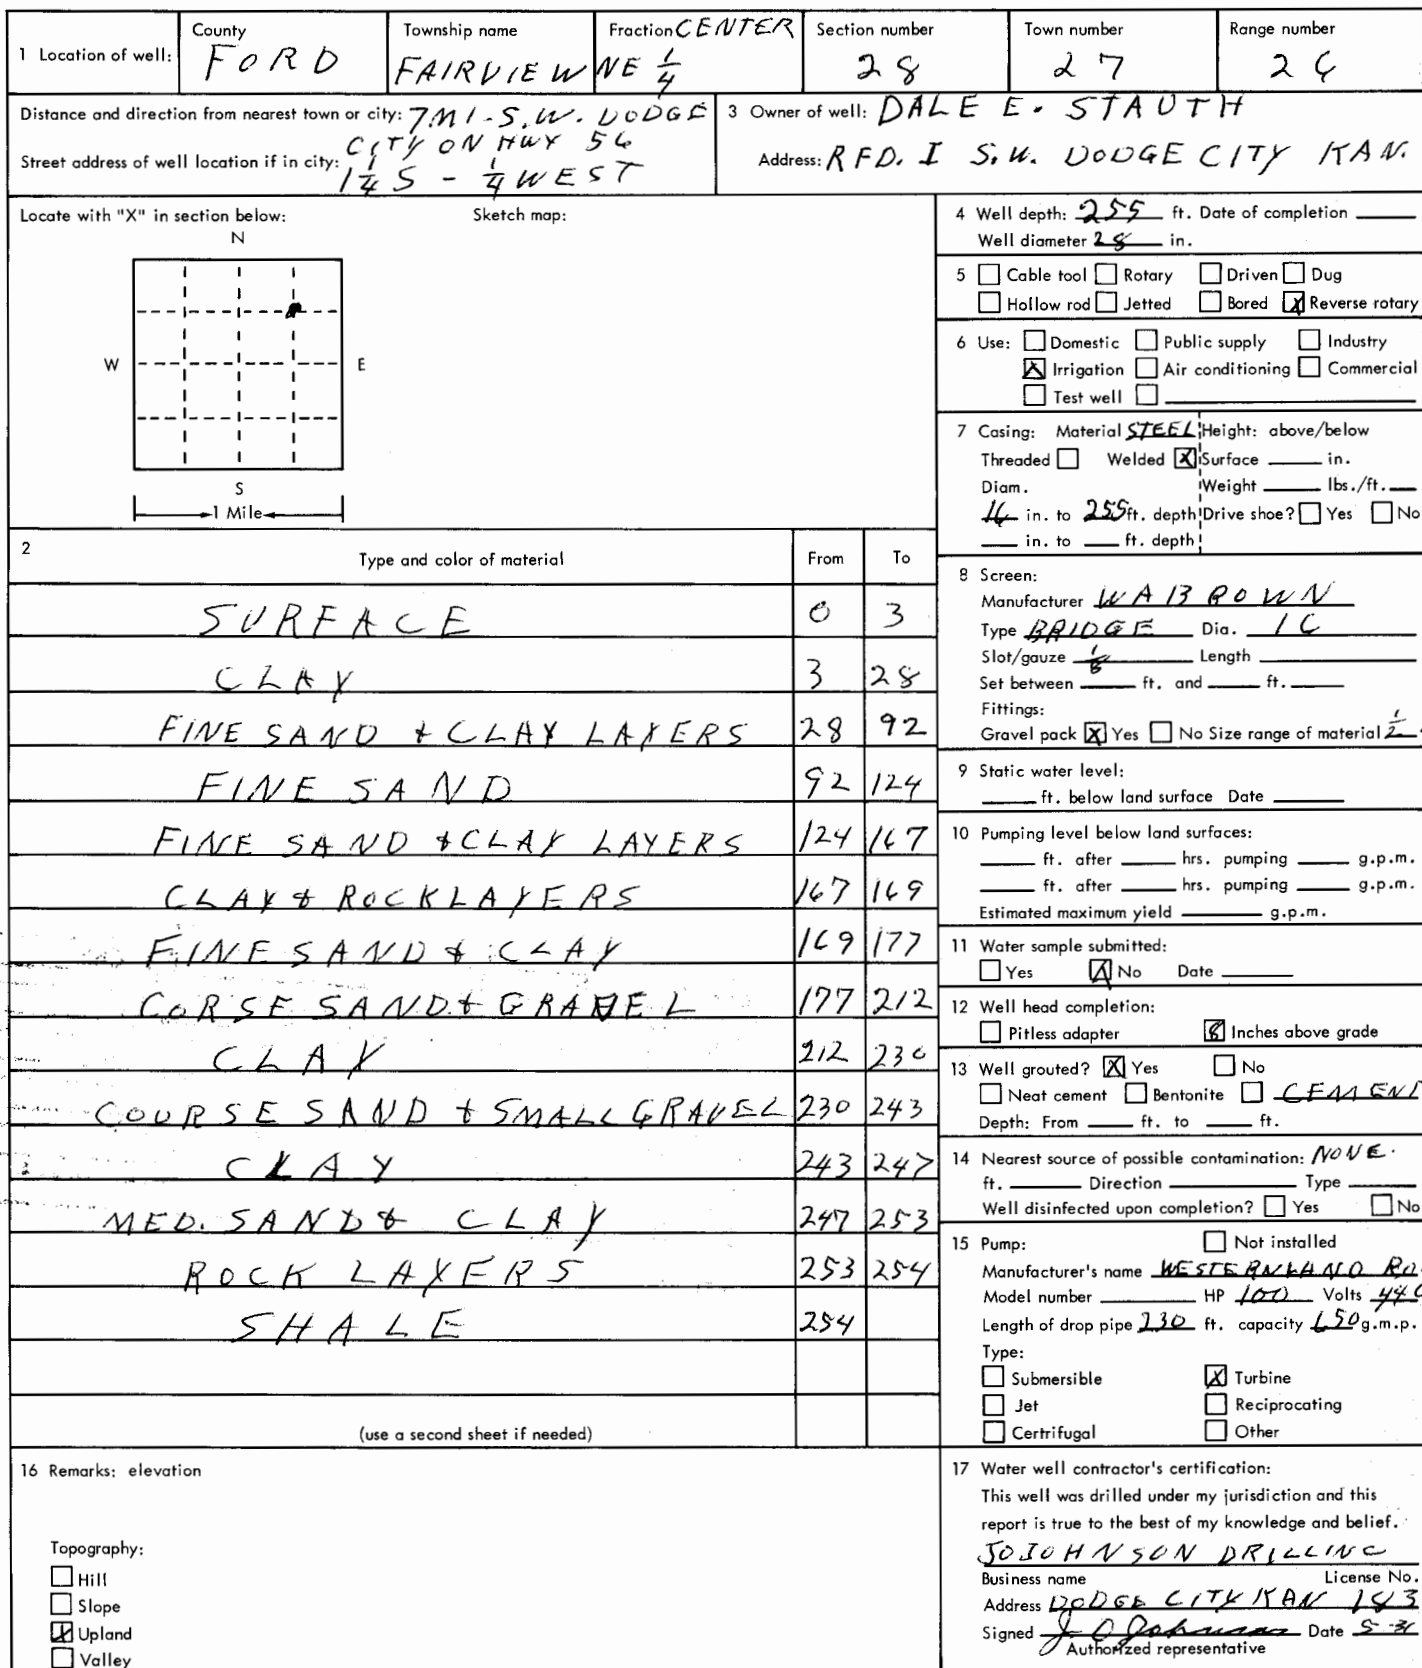 1 Location of well: County FORD Township name FAIRVIEW Fraction CENTER NE 1/4 Section number 28 Town number 27 Range number 26
Distance and direction from nearest town or city: 7 MI - S.W. DODGE
CITY ON HWY 56
Street address of well location if in city: 1 1/4 S - 1/4 WEST
3 Owner of well: DALE E. STAUTH
Address: RFD. I S.W. DODGE CITY KAN.
Locate with "X" in section below:
Sketch map:
N
W E
S
1 Mile
2 Type and color of material From To
SURFACE 0 3
CLAY 3 28
FINE SAND & CLAY LAYERS 28 92
FINE SAND 92 124
FINE SAND & CLAY LAYERS 124 167
CLAY & ROCK LAYERS 167 169
FINE SAND & CLAY 169 177
CORSE SAND & GRAVEL 177 212
CLAY 212 230
COURSE SAND & SMALL GRAVEL 230 243
CLAY 243 247
MED. SAND & CLAY 247 253
ROCK LAYERS 253 254
SHALE 254
(use a second sheet if needed)
4 Well depth: 255 ft. Date of completion
Well diameter 28 in.
5 Cable tool Rotary Driven Dug
Hollow rod Jetted Bored X Reverse rotary
6 Use: Domestic Public supply Industry
X Irrigation Air conditioning Commercial
Test well
7 Casing: Material STEEL Height: above/below
Threaded Welded X Surface in.
Diam. Weight lbs./ft.
16 in. to 255 ft. depth Drive shoe? Yes No
in. to ft. depth
8 Screen:
Manufacturer WA BROWN
Type BRIDGE Dia. 16
Slot/gauge 1/8 Length
Set between ft. and ft.
Fittings:
Gravel pack X Yes No Size range of material 1/2
9 Static water level:
ft. below land surface Date
10 Pumping level below land surfaces:
ft. after hrs. pumping g.p.m.
ft. after hrs. pumping g.p.m.
Estimated maximum yield g.p.m.
11 Water sample submitted:
Yes X No Date
12 Well head completion:
Pitless adapter 8 Inches above grade
13 Well grouted? X Yes No
Neat cement Bentonite
Depth: From ft. to ft.
14 Nearest source of possible contamination: NONE.
ft. Direction Type
Well disinfected upon completion? Yes No
15 Pump: Not installed
Manufacturer's name
Model number HP 100 Volts 440
Length of drop pipe 230 ft. capacity 650 g.m.p.
Type:
Submersible X Turbine
Jet Reciprocating
Certrifugal Other
16 Remarks: elevation
Topography:
Hill
Slope
X Upland
Valley
17 Water well contractor's certification:
This well was drilled under my jurisdiction and this
report is true to the best of my knowledge and belief.
JOJOHNSON DRILLING
Business name License No.
Address DODGE CITY KAN 183
Signed J O Johnson Date
Authorized representative